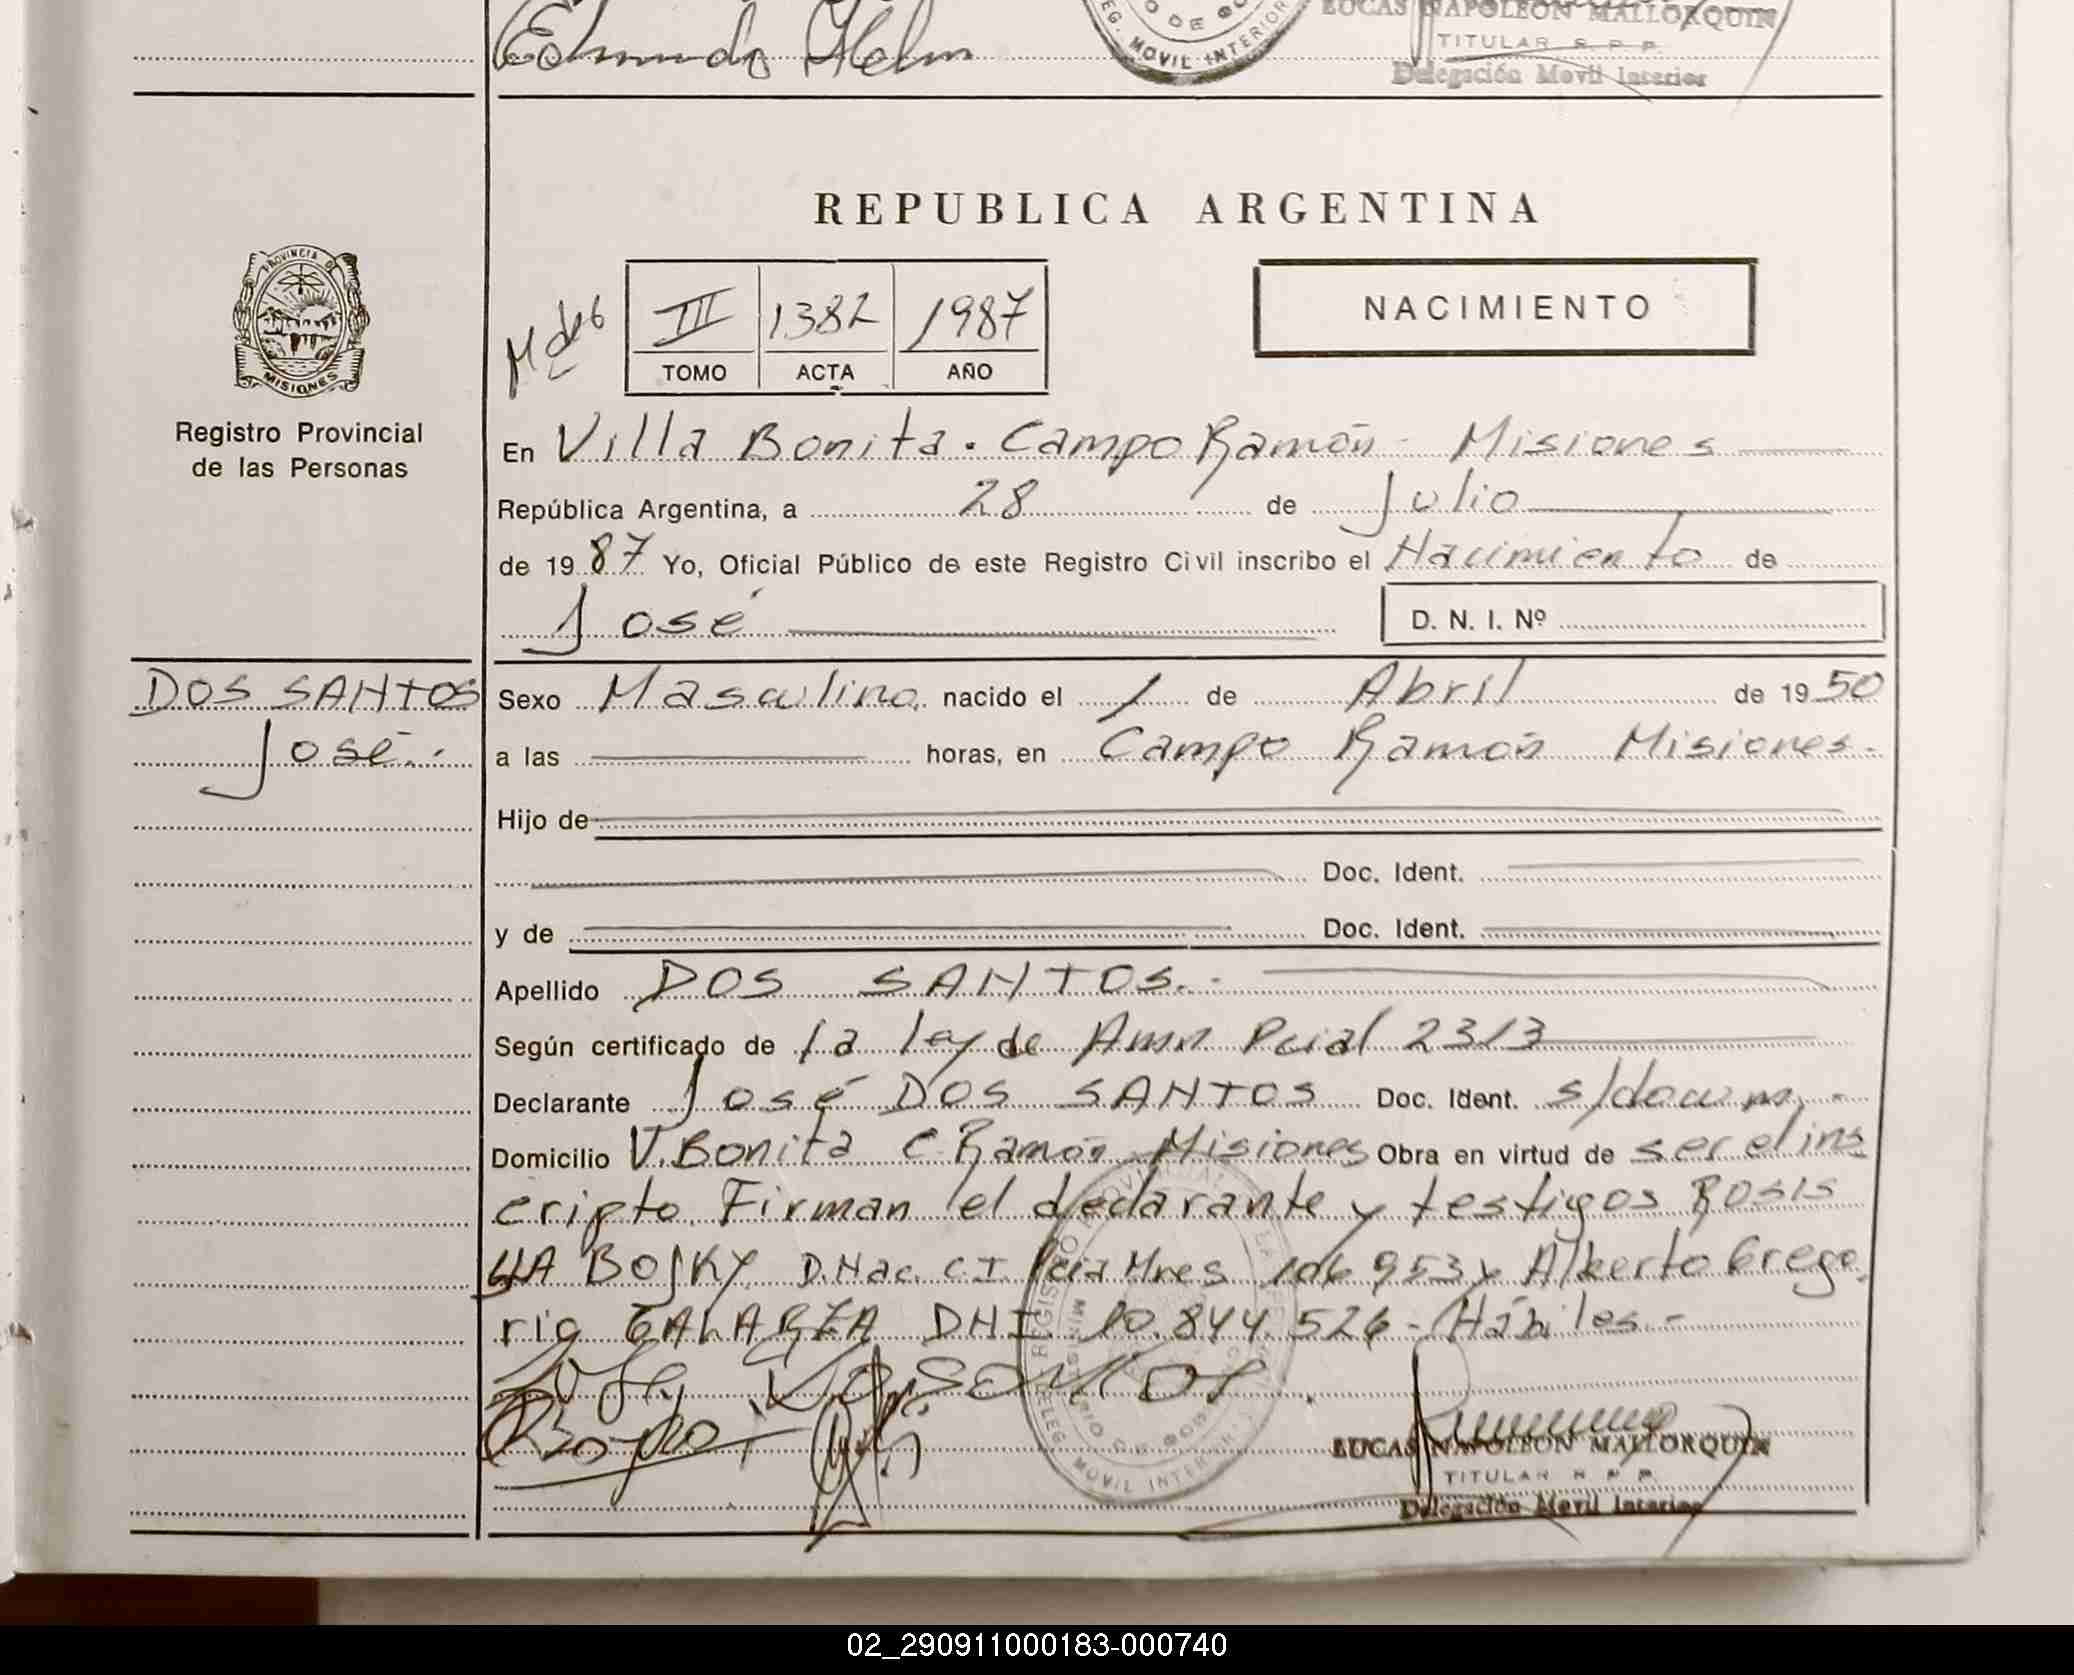 Edmundo Helm
DELEG. MOVIL INTERIOR
LUCAS NAPOLEON MALLORQUIN
TITULAR R. P. P.
Delegación Movil Interior
REPUBLICA ARGENTINA
PROVINCIA DE
MISIONES
Registro Provincial
de las Personas
III 1382 1987
TOMO ACTA AÑO
NACIMIENTO
En Villa Bonita. Campo Ramón - Misiones
República Argentina, a 28 de Julio
de 1987 Yo, Oficial Público de este Registro Civil inscribo el Nacimiento de
José D. N. I. Nº
DOS SANTOS
José.-
Sexo Masculino nacido el 1 de Abril de 1950
a las horas, en Campo Ramón Misiones.
Hijo de
Doc. Ident.
y de Doc. Ident.
Apellido DOS SANTOS.-
Según certificado de la ley de Amn Pcial 2313
Declarante José DOS SANTOS Doc. Ident. s/docum.-
Domicilio V. Bonita C. Ramón Misiones Obra en virtud de ser el ins
cripto. Firman el declarante y testigos
D.Nac. C.I. Pcia Mnes 106953 y Alberto Grego
rio GALARZA DNI 10.844.526 - Hábiles.-
LUCAS NAPOLEON MALLORQUIN
TITULAR R. P. P.
Delegación Movil Interior
02_290911000183-000740